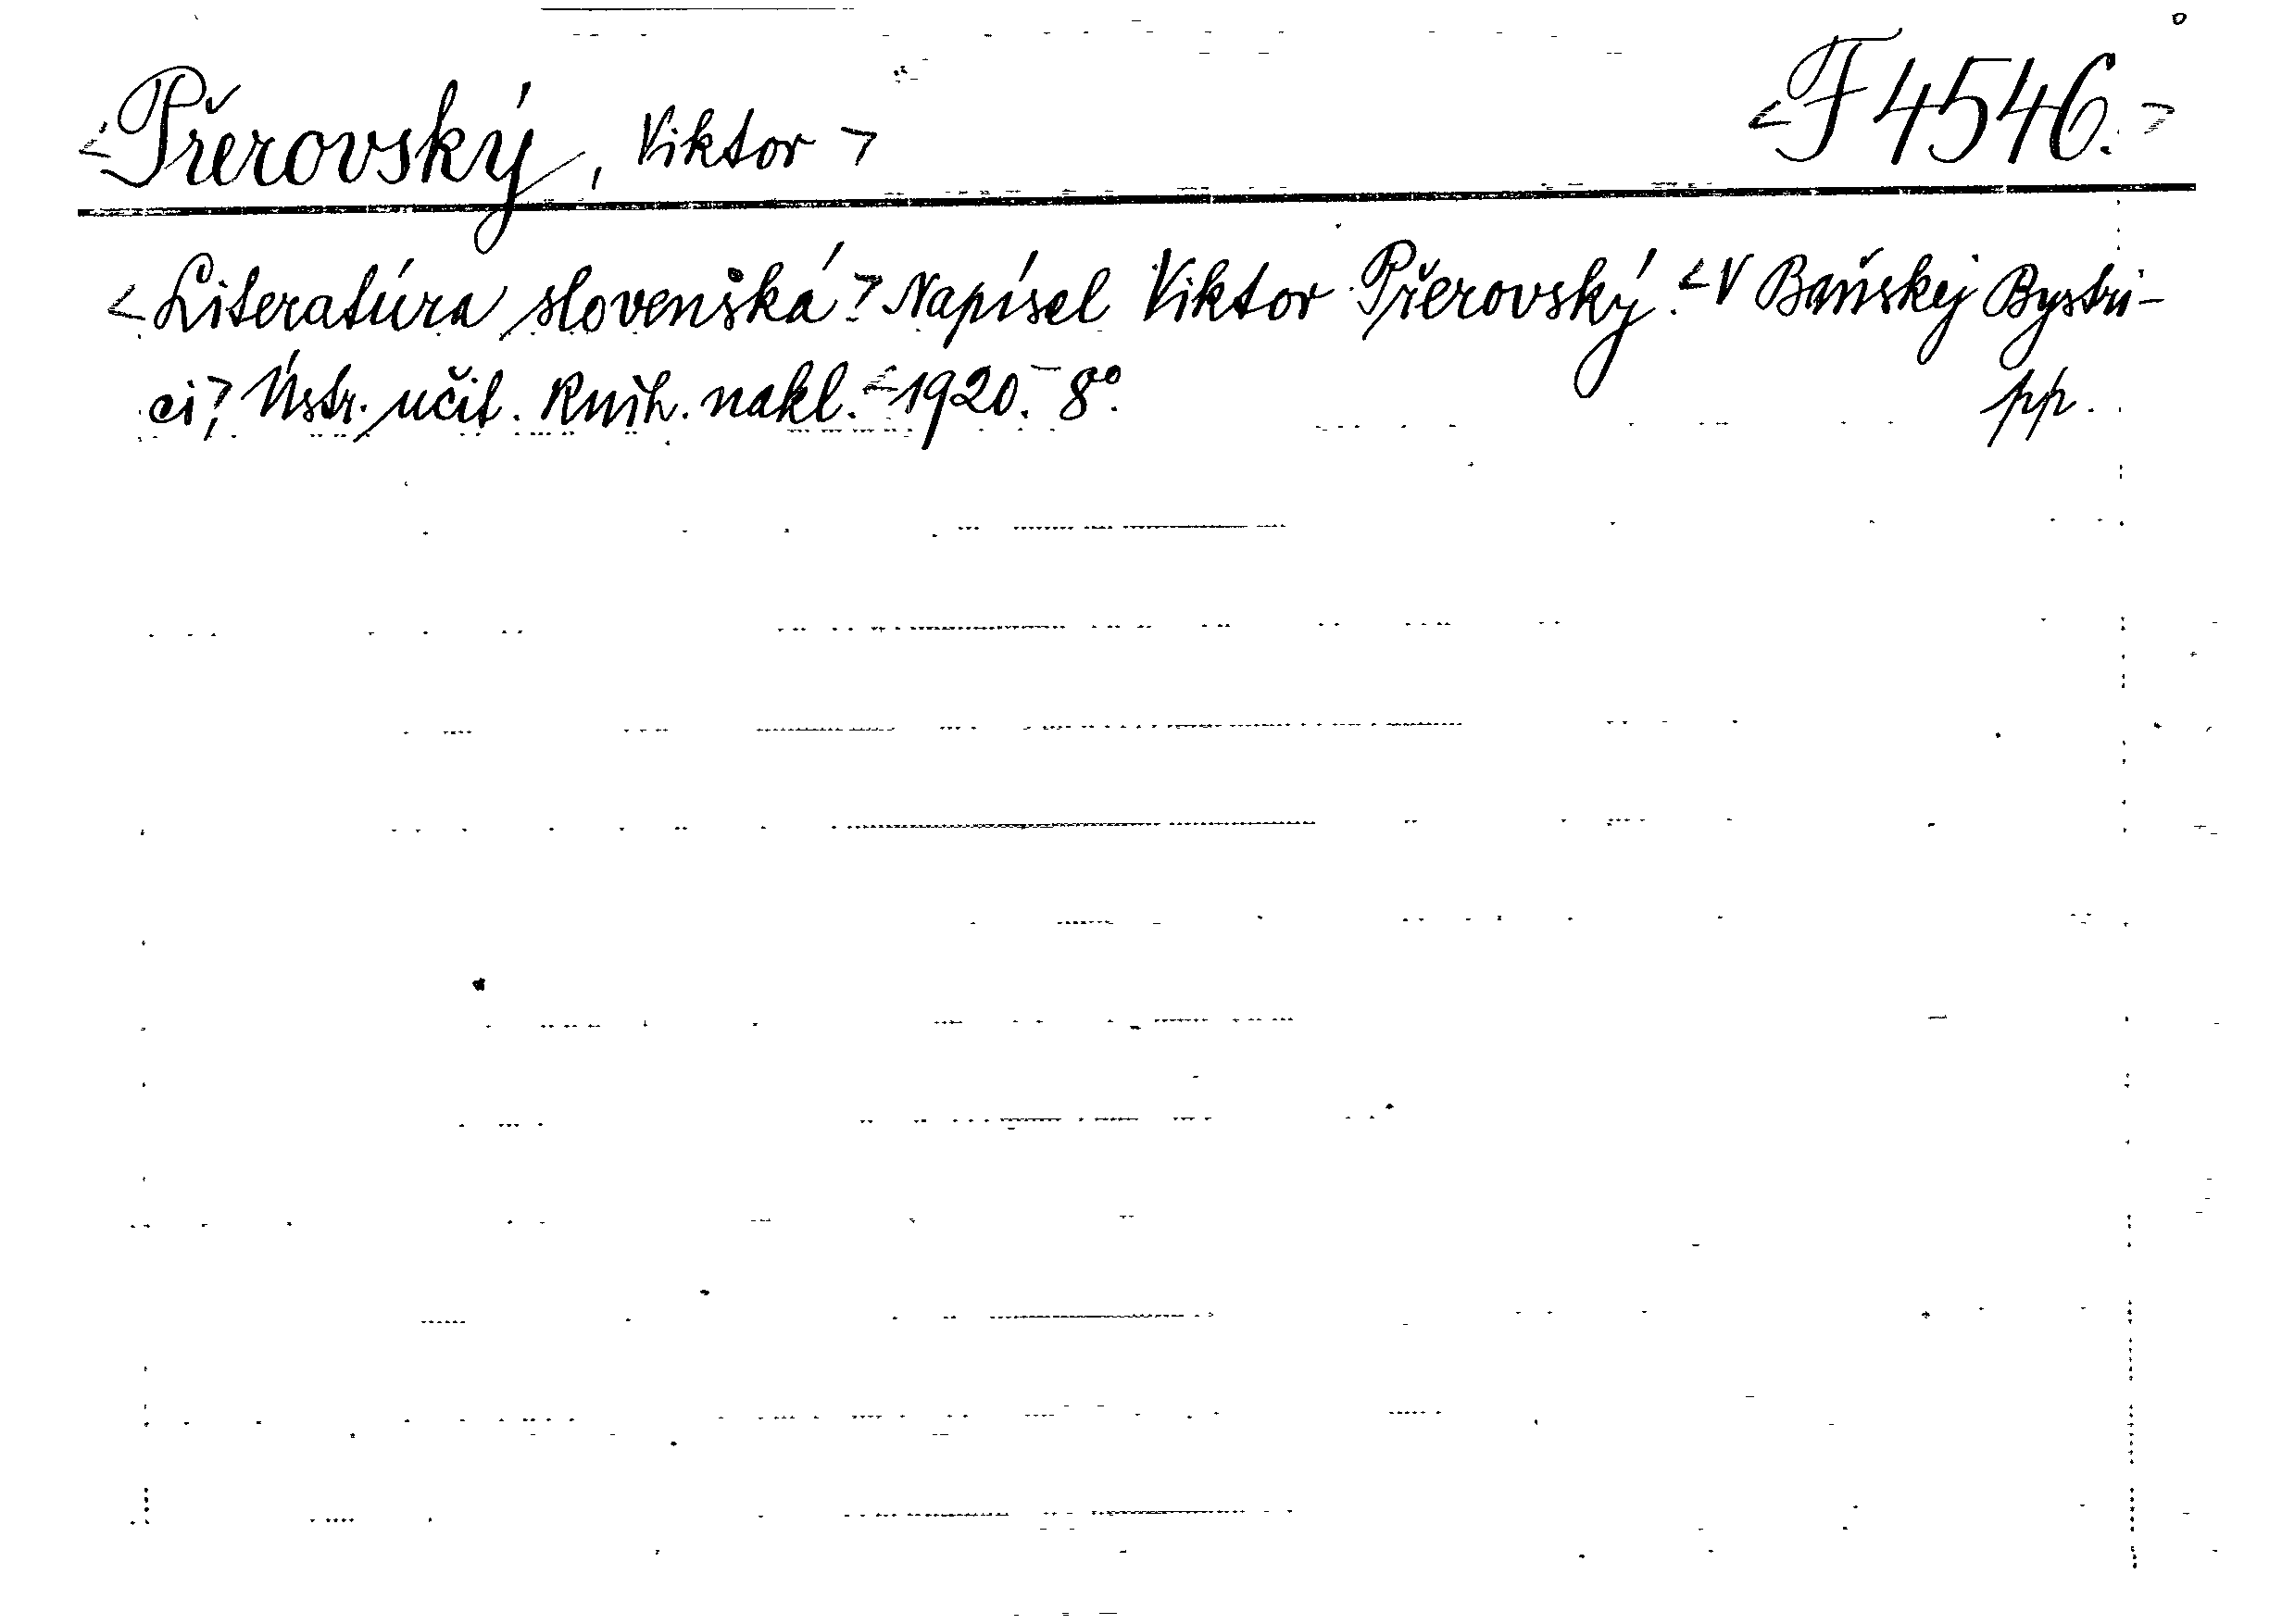 <Přerovský, Viktor> <F 4546.>
<Literatúra slovenská.> Napísal Viktor Přerovský. <V Baňskej Bystri-
ci,> Ústr. učit. knih. nakl. <1920. - 8°. pp.